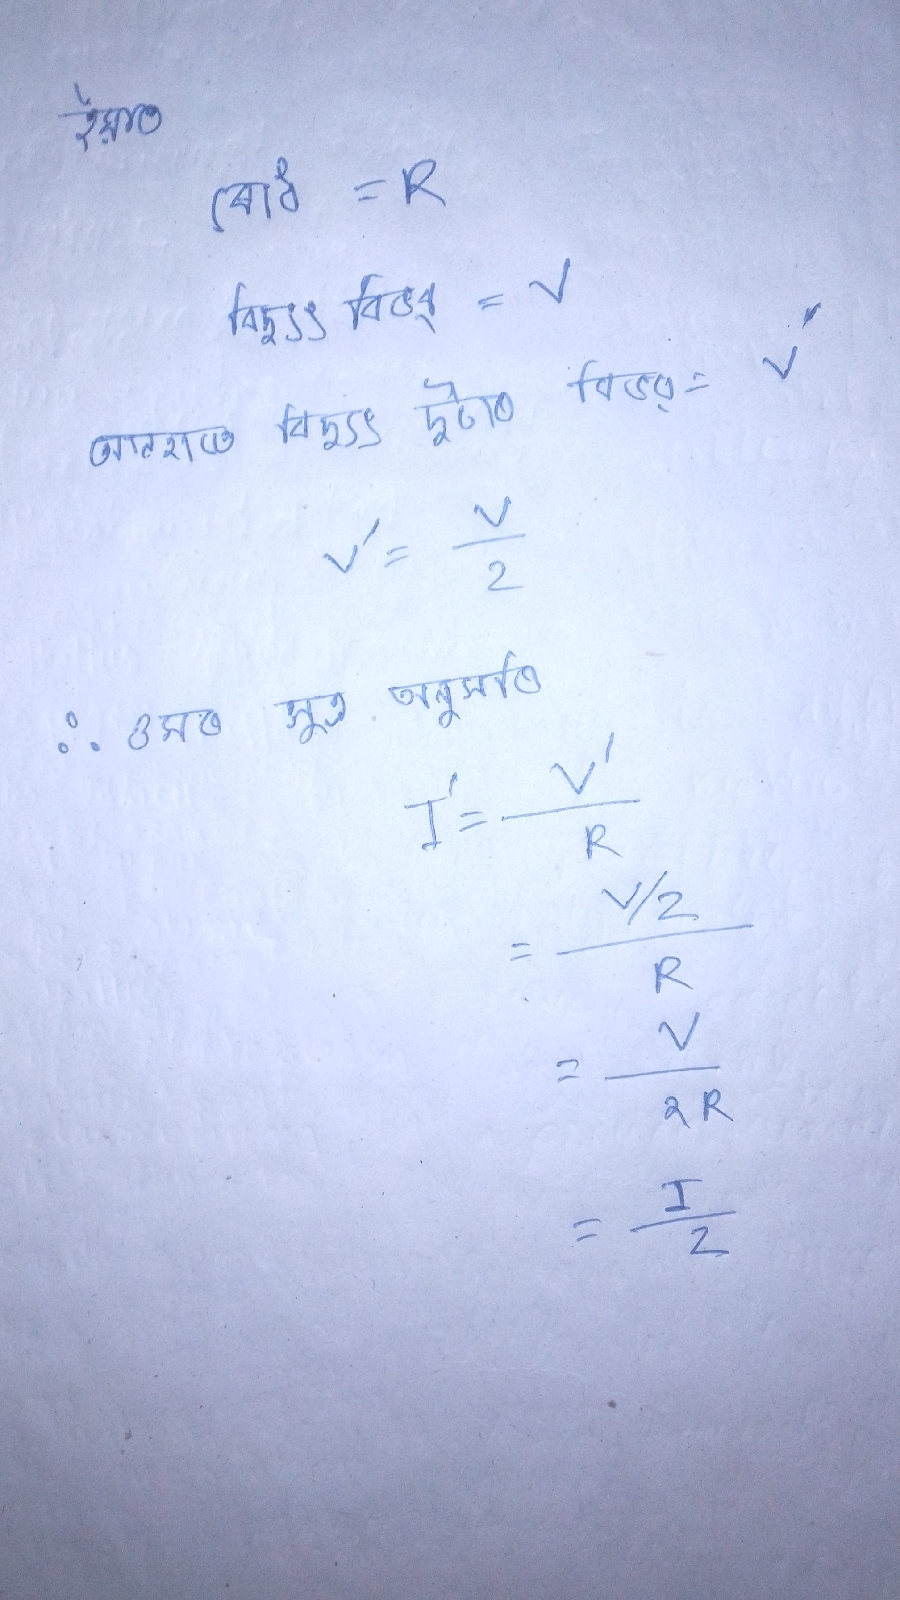 ইয়াত
ৰোধ = R
বিদ্যুৎ বিভৱ = V
আনহাতে বিদ্যুৎ দুটাত বিভৱ = V'
V' = V/2
∴ ওমৰ সূত্ৰ অনুসৰি
I' = V'/R
= V/2/R
= V/2R
= I/2